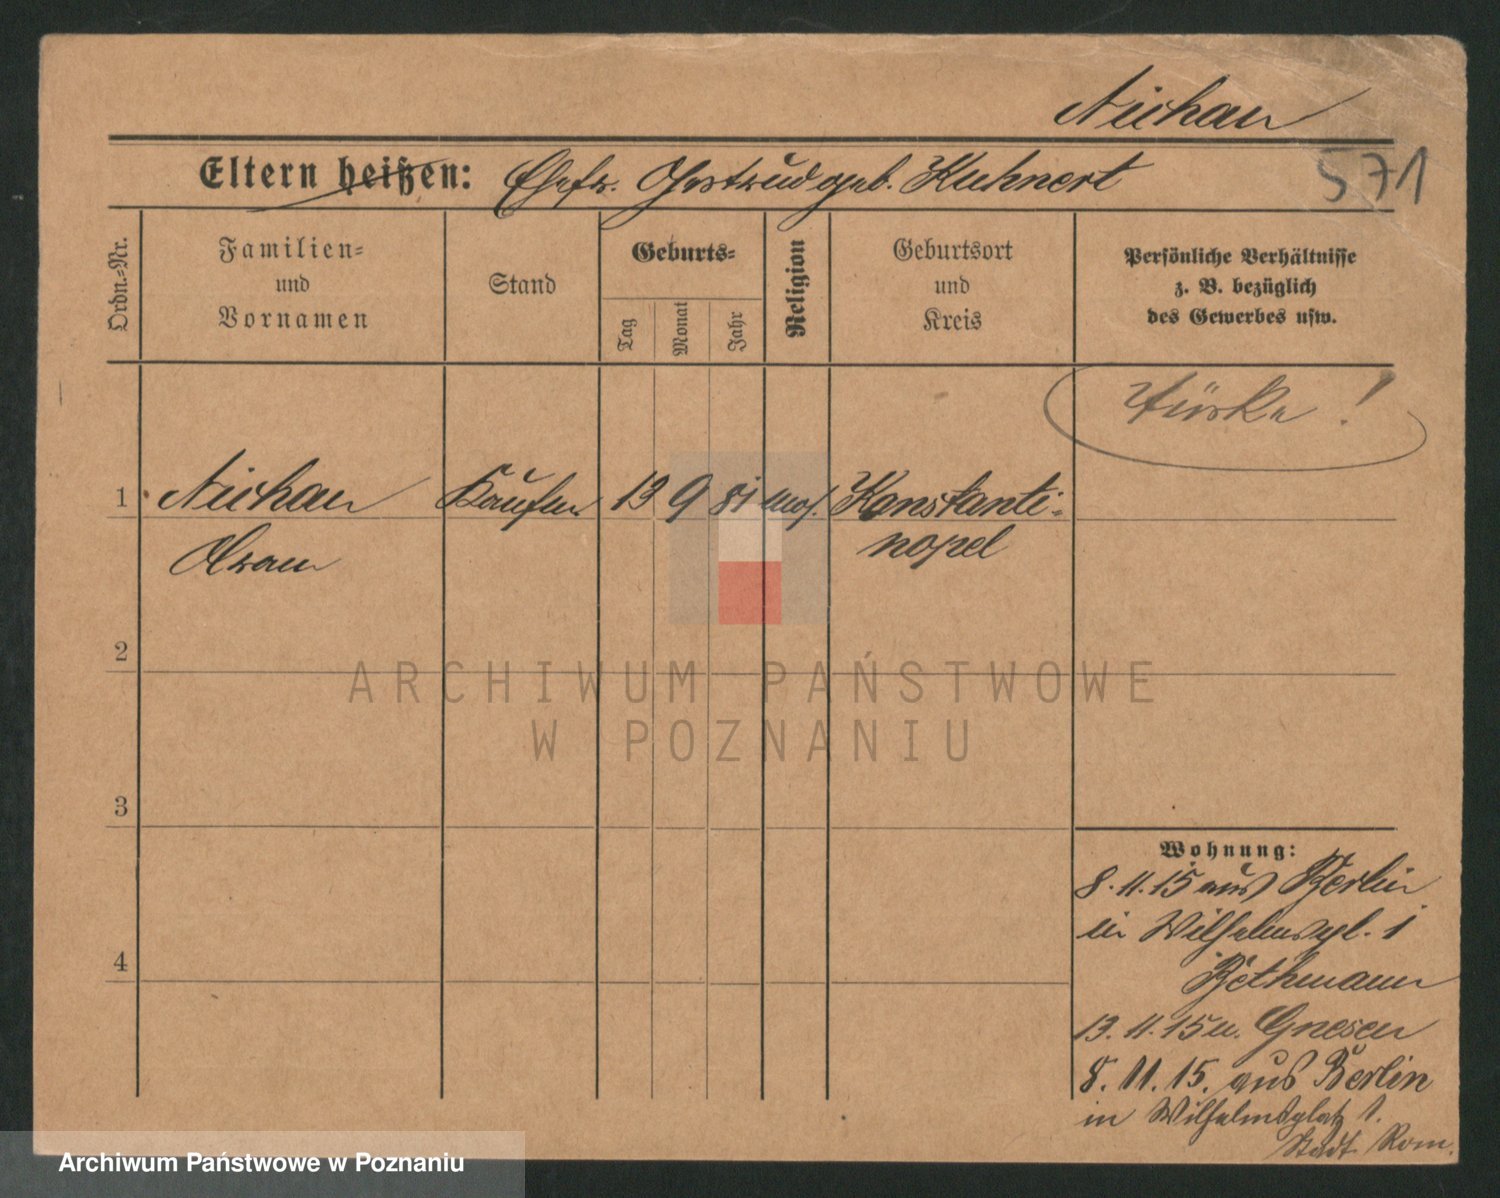 Nichan
Eltern heißen: Ehefr. Gertrud geb. Kuhnert
571
Ordn.-Nr.
Familien-
und
Vornamen
Stand
Geburts-
Tag
Monat
Jahr
Religion
Geburtsort
und
Kreis
Persönliche Verhältnisse
z. B. bezüglich
des Gewerbes usw.
Türke!
1 Nichan Kaufm. 13 9 81 mos. Konstanti-
nopel
2
3
4
Wohnung:
8.11.15 aus Berlin
in Wilhelmspl. 1
Bethmann
13.11.15 n. Gnesen
8.11.15. aus Berlin
in Wilhelmsplatz 1.
Stadt Rom.
ARCHIWUM PAŃSTWOWE
W POZNANIU
Archiwum Państwowe w Poznaniu